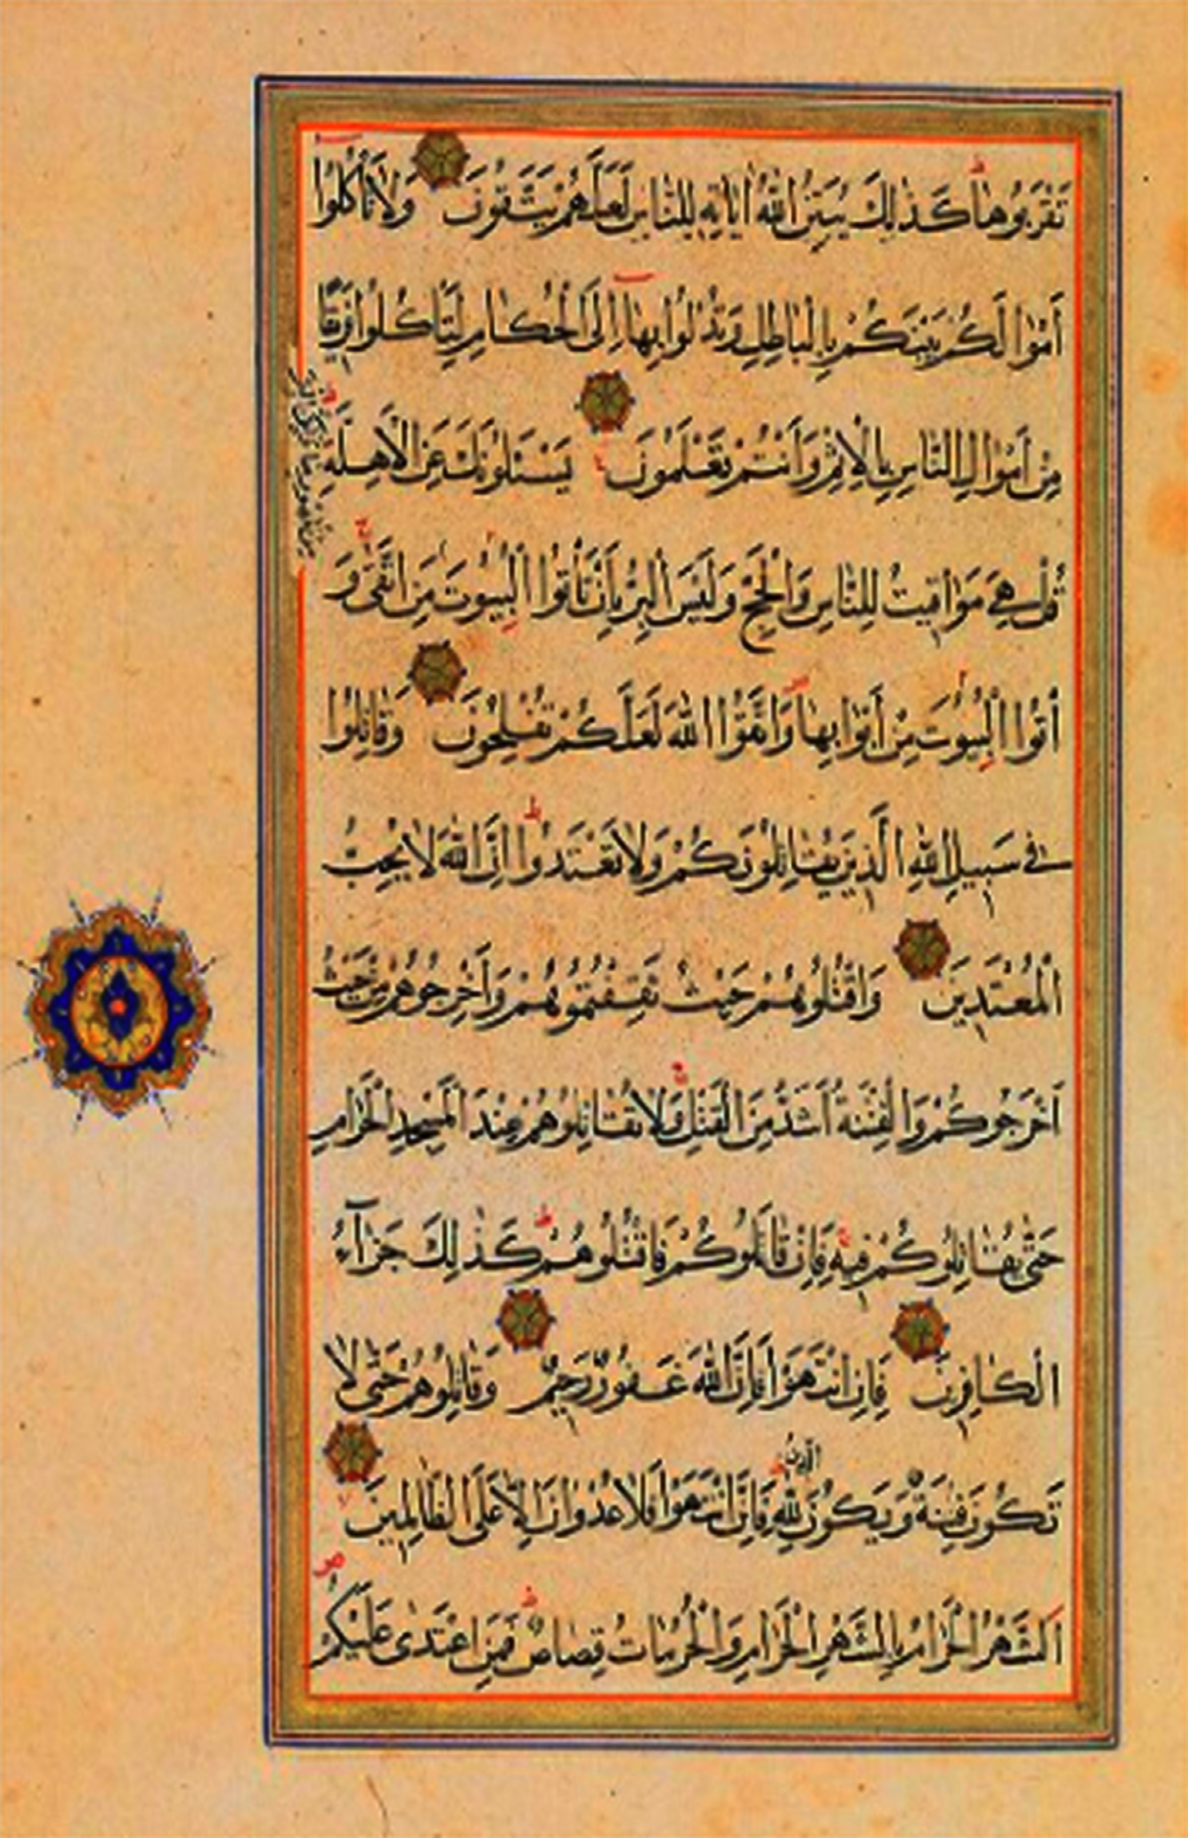 تَقْرَبُوهَا كَذٰلِكَ يُبَيِّنُ اللّٰهُ اٰيَاتِهِ لِلنَّاسِ لَعَلَّهُمْ يَتَّقُونَ وَلَا تَأْكُلُوا
أَمْوَالَكُمْ بَيْنَكُمْ بِالْبَاطِلِ وَتُدْلُوا بِهَا إِلَى الْحُكَّامِ لِتَأْكُلُوا فَرِيقًا
مِنْ أَمْوَالِ النَّاسِ بِالْإِثْمِ وَأَنْتُمْ تَعْلَمُونَ يَسْئَلُونَكَ عَنِ الْأَهِلَّةِ
قُلْ هِيَ مَوَاقِيتُ لِلنَّاسِ وَالْحَجِّ وَلَيْسَ الْبِرُّ بِأَنْ تَأْتُوا الْبُيُوتَ مَنِ اتَّقَىٰ وَ
من ظهورها ولكن البر
أْتُوا الْبُيُوتَ مِنْ أَبْوَابِهَا وَاتَّقُوا اللّٰهَ لَعَلَّكُمْ تُفْلِحُونَ وَقَاتِلُوا
فِي سَبِيلِ اللّٰهِ الَّذِينَ يُقَاتِلُونَكُمْ وَلَا تَعْتَدُوا إِنَّ اللّٰهَ لَا يُحِبُّ
الْمُعْتَدِينَ وَاقْتُلُوهُمْ حَيْثُ ثَقِفْتُمُوهُمْ وَأَخْرِجُوهُمْ مِنْ حَيْثُ
أَخْرَجُوكُمْ وَالْفِتْنَةُ أَشَدُّ مِنَ الْقَتْلِ وَلَا تُقَاتِلُوهُمْ عِنْدَ الْمَسْجِدِ الْحَرَامِ
حَتَّىٰ يُقَاتِلُوكُمْ فِيهِ فَإِنْ قَاتَلُوكُمْ فَاقْتُلُوهُمْ كَذٰلِكَ جَزَآءُ
الْكَافِرِينَ فَإِنِ انْتَهَوْا فَإِنَّ اللّٰهَ غَفُورٌ رَحِيمٌ وَقَاتِلُوهُمْ حَتَّىٰ لَا
الدين
تَكُونَ فِتْنَةٌ وَيَكُونَ لِلّٰهِ فَإِنِ انْتَهَوْا فَلَا عُدْوَانَ إِلَّا عَلَى الظَّالِمِينَ
اَلشَّهْرُ الْحَرَامُ بِالشَّهْرِ الْحَرَامِ وَالْحُرُمَاتُ قِصَاصٌ فَمَنِ اعْتَدَىٰ عَلَيْكُمْ